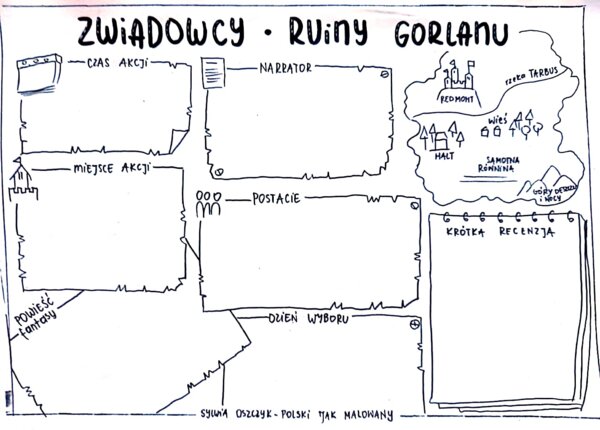 ZWIADOWCY · RUINY GORLANU
CZAS AKCJI
NARRATOR
rzeka TARBUS
REDMONT
WIEŚ
HALT
SAMOTNA
RÓWNINA
GÓRY DESZCZU
i NOCY
MIEJSCE AKCJI
POSTACIE
KRÓTKA RECENZJA
POWIEŚĆ
fantasy
DZIEŃ WYBORU
SYLWIA OSZCZYK - POLSKI JAK MALOWANY